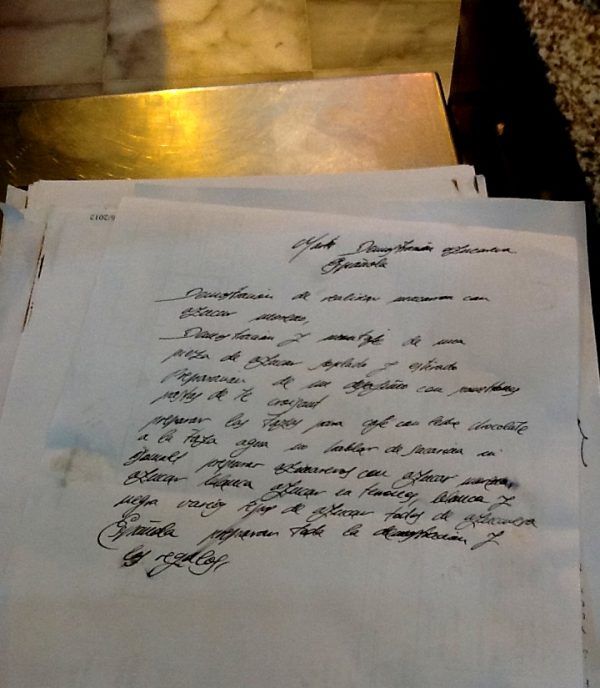 6/2012
Demostración azucarera
Española
Demostración de realizar macaron con
azucar moreno,
Demostracion y montaje de una
pieza de azucar soplado y estirado
Preparacion de un desayuno con
pastas de te croisant
preparar las tazas para café con leche chocolate
a la taza agua no hablar de sacarina ni
preparar azucareros con azucar moreno,
azucar liquida azucar en terrones blanca y
negra varios tipos de azucar todos de azucarera
Española preparar toda la demostración y
los regalos,